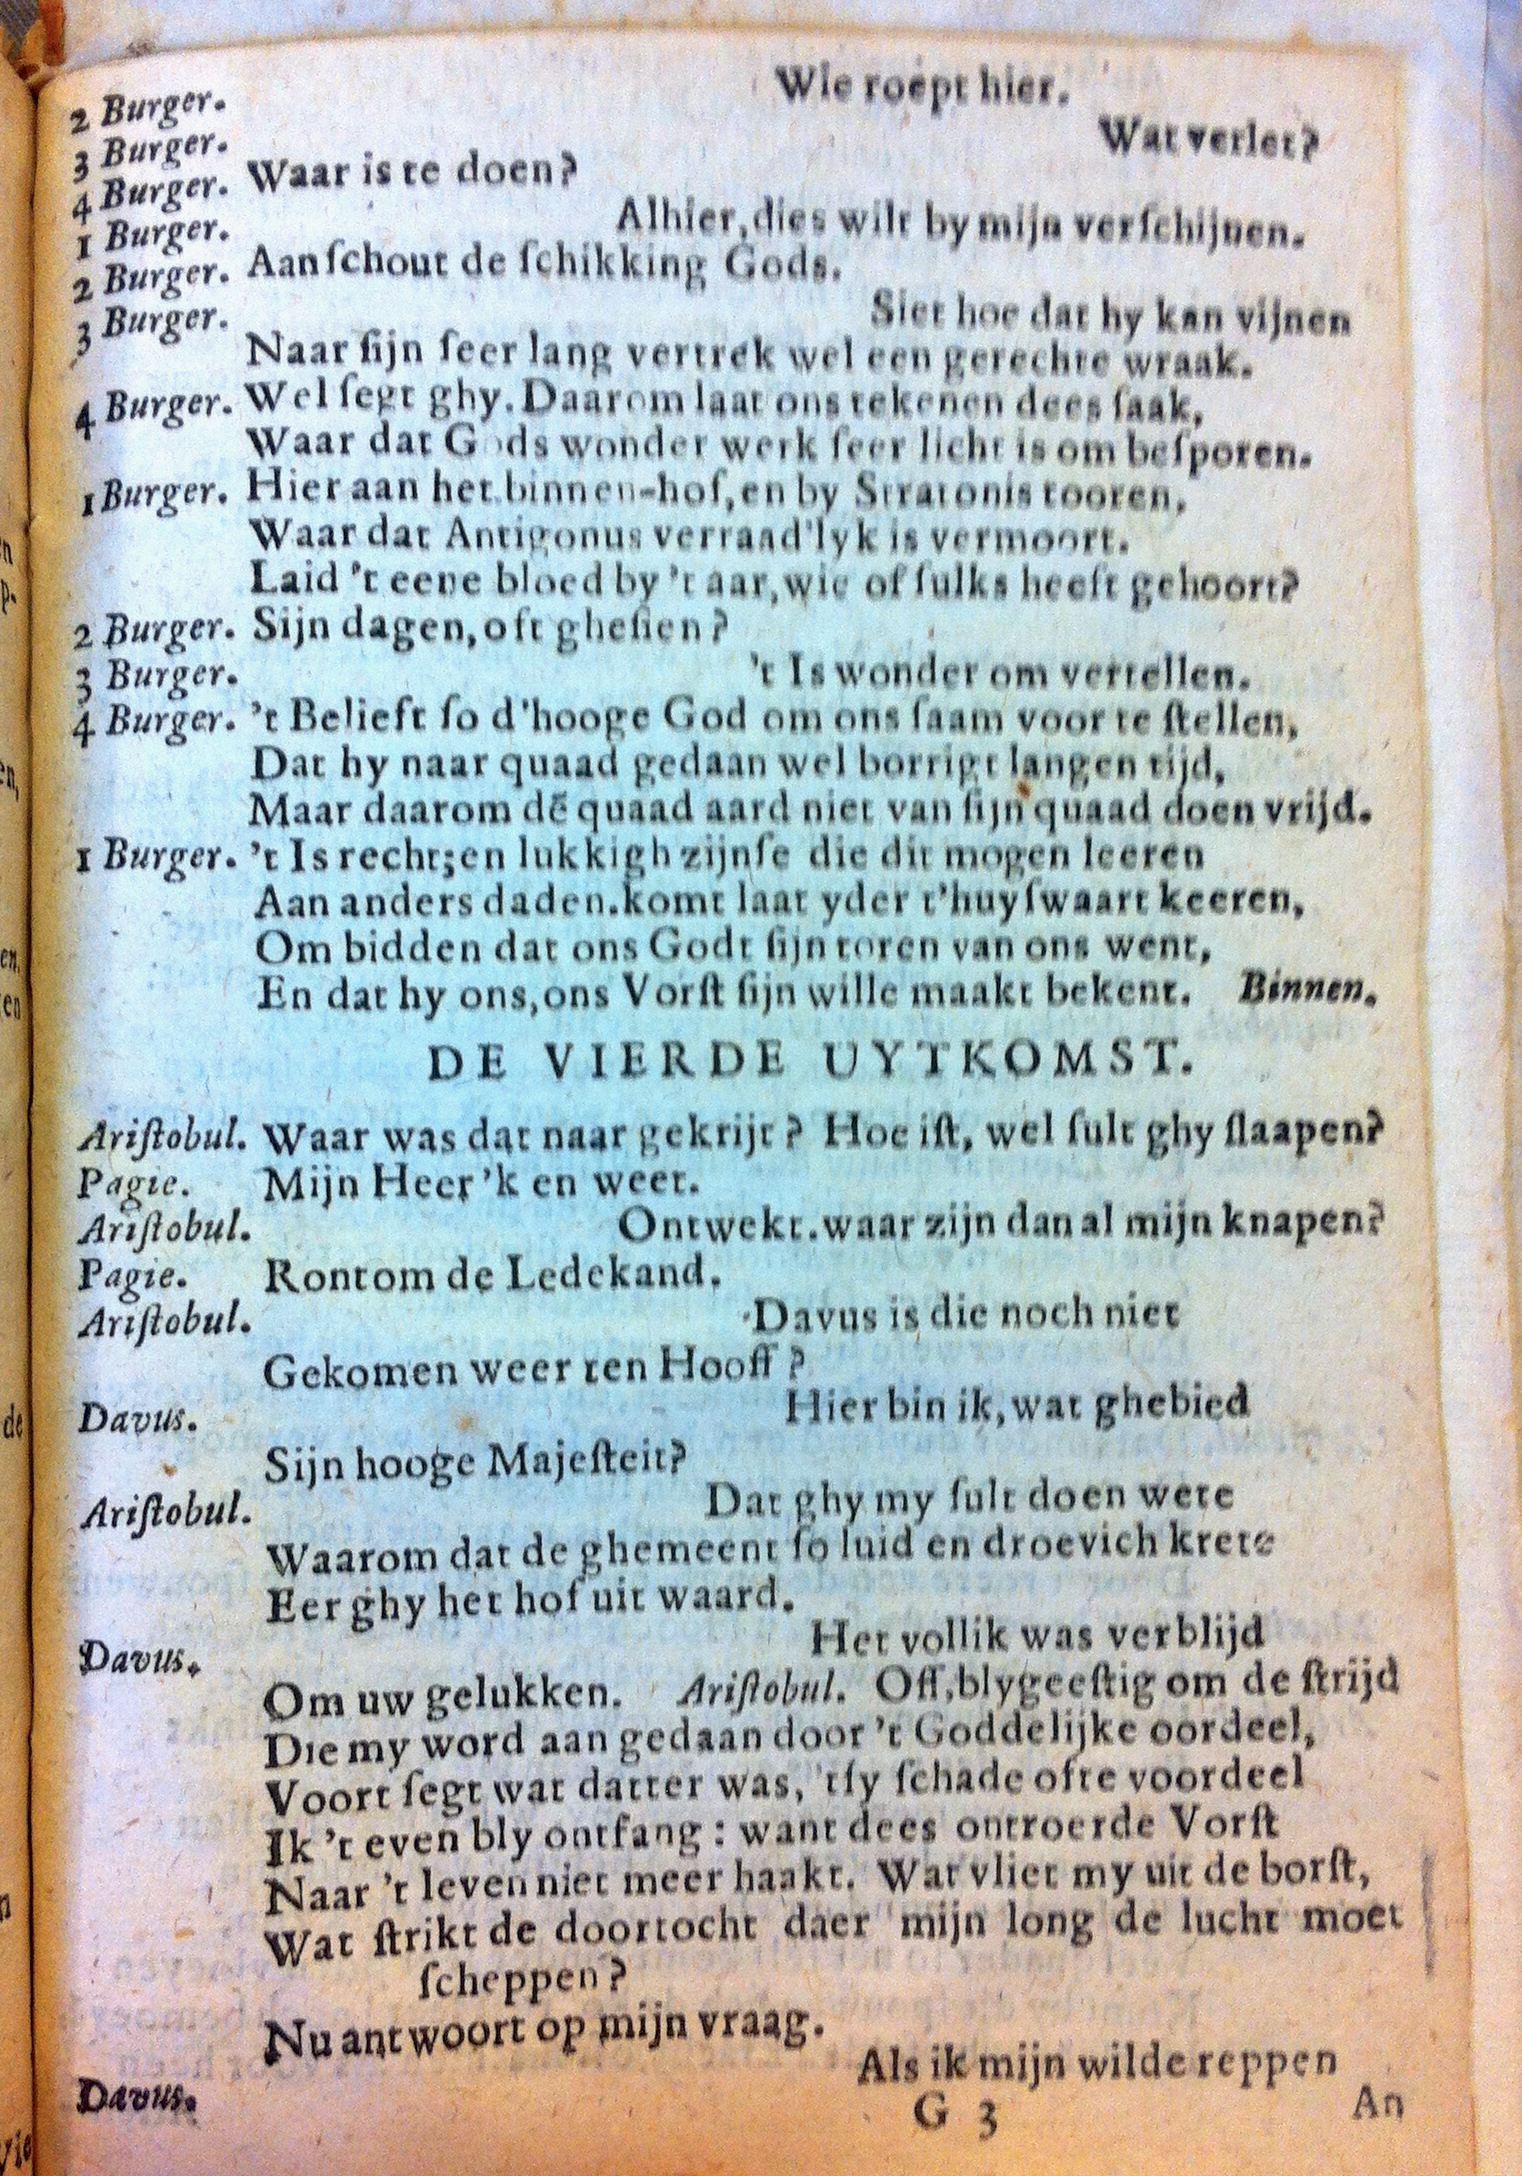 2 Burger. Wie roept hier.
3 Burger. Wat verlet?
4 Burger. Waar is te doen?
1 Burger. Alhier, dies wilt by mijn verſchijnen.
2 Burger. Aanſchout de ſchikking Gods.
3 Burger. Siet hoe dat hy kan vijnen
Naar ſijn ſeer lang vertrek wel een gerechte wraak.
4 Burger. Wel ſegt ghy. Daarom laat ons tekenen dees ſaak,
Waar dat Gods wonder werk ſeer licht is om beſporen.
1 Burger. Hier aan het binnen-hof, en by Stratonis tooren,
Waar dat Antigonus verraad'lyk is vermoort.
Laid 't eene bloed by 't aar, wie of ſulks heeft gehoort?
2 Burger. Sijn dagen, oft gheſien?
3 Burger. 't Is wonder om vertellen.
4 Burger. 't Belieft ſo d'hooge God om ons ſaam voor te ſtellen,
Dat hy naar quaad gedaan wel borrigt langen tijd,
Maar daarom dē quaad aard niet van ſijn quaad doen vrijd.
1 Burger. 't Is recht; en lukkigh zijnſe die dit mogen leeren
Aan anders daden. komt laat yder t'huyſwaart keeren,
Om bidden dat ons Godt ſijn toren van ons went,
En dat hy ons, ons Vorſt ſijn wille maakt bekent. Binnen.
DE VIERDE UYTKOMST.
Ariſtobul. Waar was dat naar gekrijt? Hoe iſt, wel ſult ghy ſlaapen?
Pagie. Mijn Heer 'k en weet.
Ariſtobul. Ontwekt. waar zijn dan al mijn knapen?
Pagie. Rontom de Ledekand.
Ariſtobul. Davus is die noch niet
Gekomen weer ten Hooff?
Davus. Hier bin ik, wat ghebied
Sijn hooge Majeſteit?
Ariſtobul. Dat ghy my ſult doen wete
Waarom dat de ghemeent ſo luid en droevich krete
Eer ghy het hof uit waard.
Davus. Het vollik was verblijd
Om uw gelukken. Ariſtobul. Off, blygeeſtig om de ſtrijd
Die my word aan gedaan door 't Goddelijke oordeel,
Voort ſegt wat datter was, 'tſy ſchade ofte voordeel
Ik 't even bly ontfang: want dees ontroerde Vorſt
Naar 't leven niet meer haakt. Wat vliet my uit de borſt,
Wat ſtrikt de doortocht daer mijn long de lucht moet
ſcheppen?
Nu antwoort op mijn vraag.
Davus. Als ik mijn wilde reppen
G 3 An